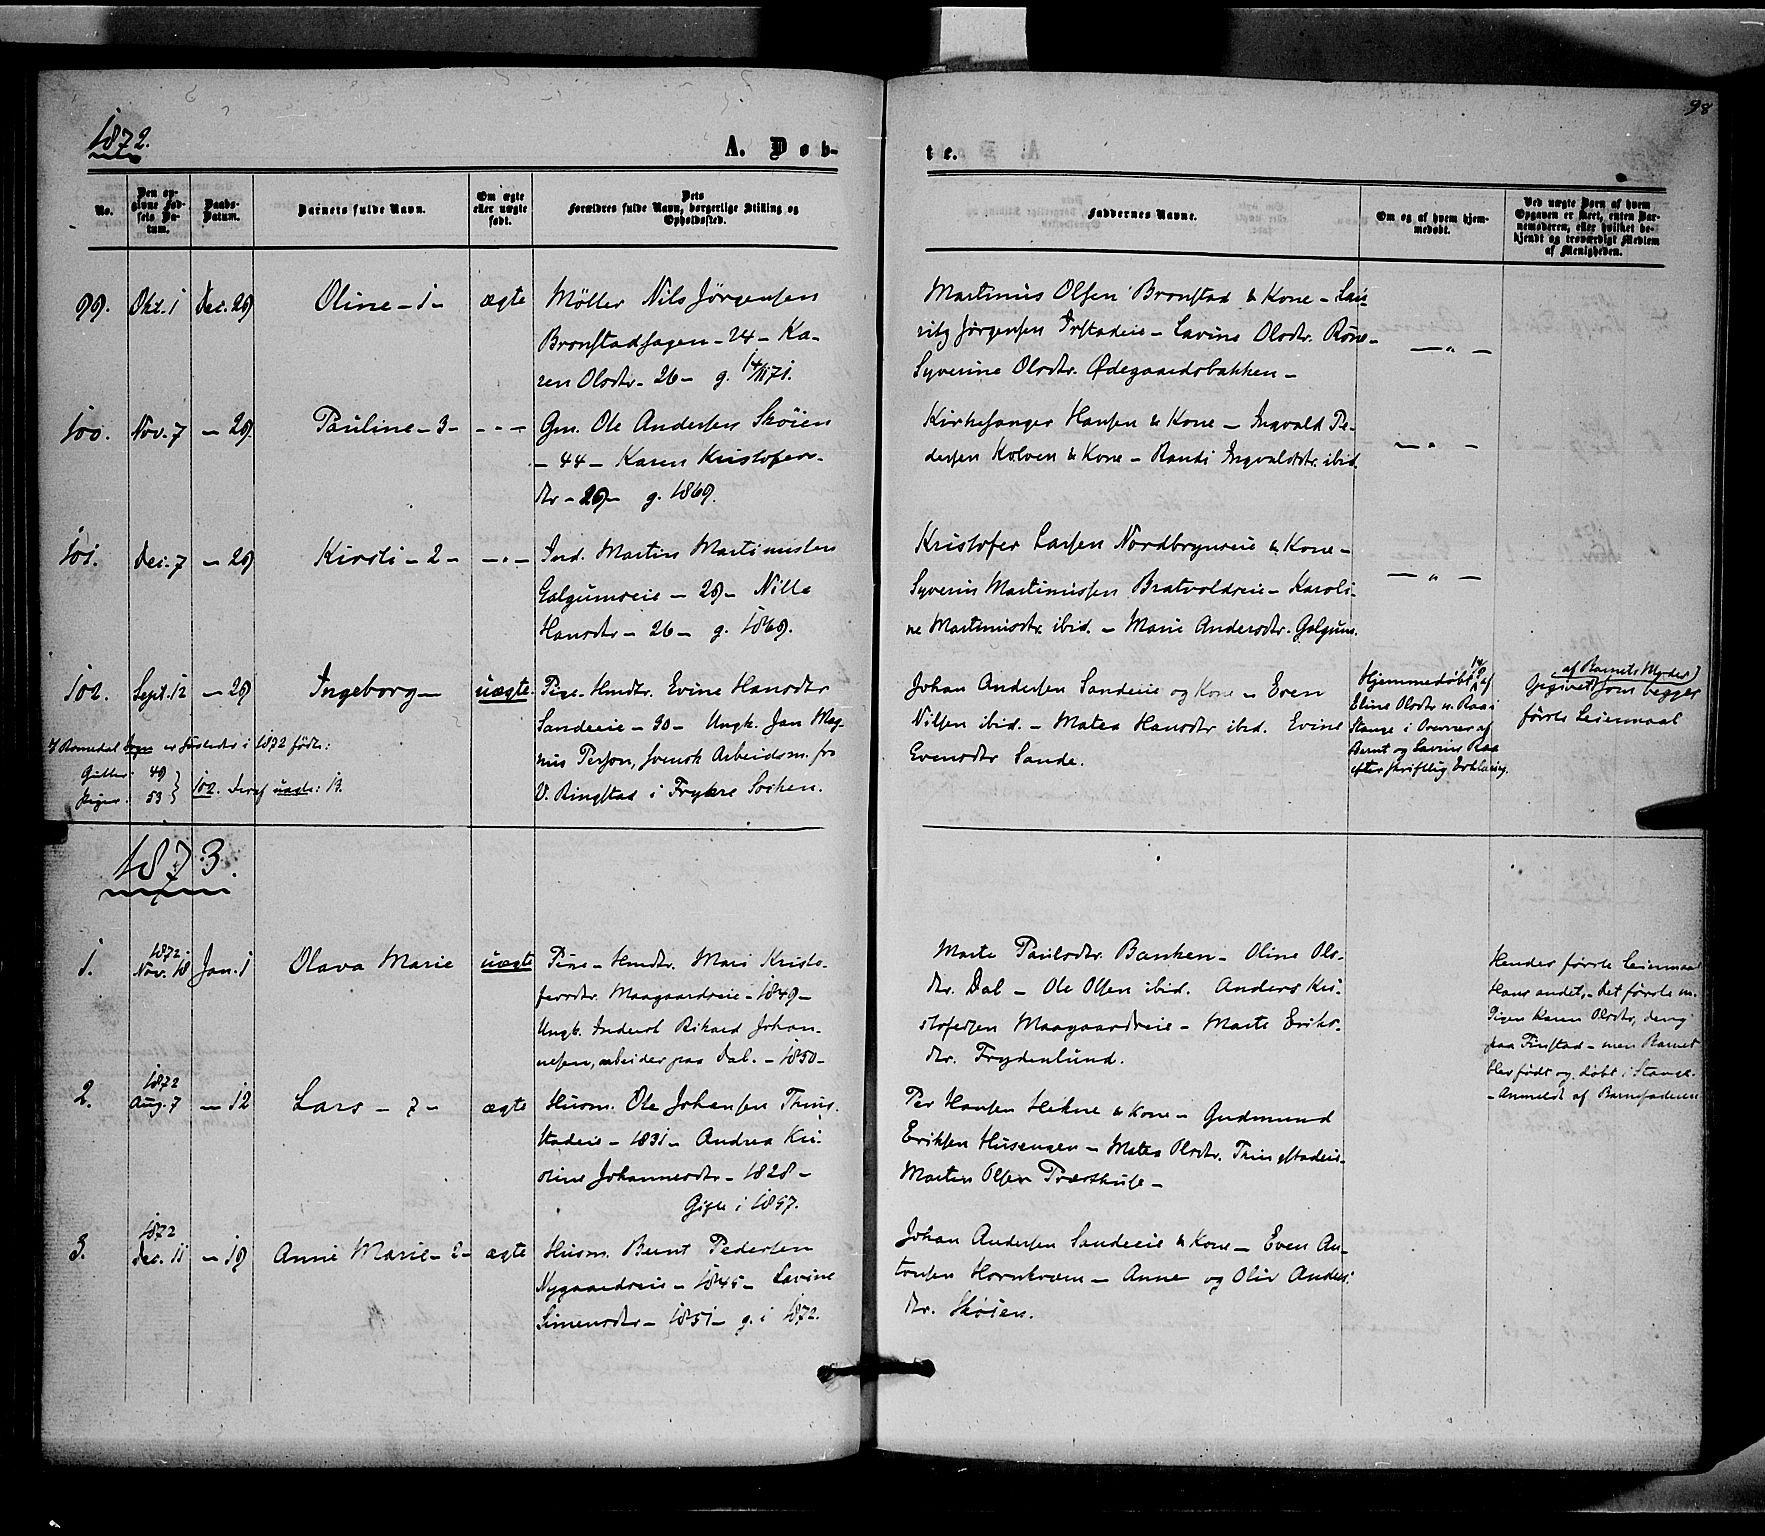 98
1872.
A. Døb-
te.
No.
Den op-
givne Fød-
sels Da-
tum.
Daabs-
Datum.
Barnets fulde Navn.
Om ægte
eller uægte
født.
Dets
Forældres fulde Navn, borgerlige Stilling og
Opholdssted.
Faddernes Navne.
Om og af hvem hjem-
medøbt.
Ved uægte Børn af hvem
Opgaven er skeet, enten Bar-
nemoderen, eller hvilket be-
kjendt og troværdigt Medlem
af Menigheden.
99. Okt. 1 Dec. 29 Oline - 1 - ægte
Møller Nils Jørgensen
Bronstadsagen - 24 - Ka-
ren Olsdtr. - 26 - g. 14/11 71.
Martinus Olsen Bronstad & Kone - Lau-
ritz Jørgensen - Lavine Olsdtr. Røne -
Syverine Olsdtr. Ødegaardsbakken -
- " -
100. Nov. 7 - 29 Pauline - 3 - - " -
Gm. Ole Andersen Skøien
- 44 - Karen Kristofers-
dtr - 29 - g. 1869.
Kirkesanger Hansen & Kone - Ingvald Pe-
dersen Kolven & Kone - Randi Ingvaldsdtr. ibid.
- " -
101. Dec. 7 - 29 Kirsti - 2 - - " -
Ind. Martin Martinussen
Galgumseie - 29 - Nille
Hansdtr - 26 - g. 1869.
Kristofer Larsen Nordbryneie & Kone -
Syverin Martinussen Bratvoldseie - Karoli-
ne Martinusdtr. ibid. - Marie Andersdtr. Galgum.
- " -
102. Sept. 12 - 29 Ingeborg - uægte.
Pige - Hmdtr. Evine Hansdtr
Sandeeie - 30 - Ungk. Jan Mag-
nus Person, svensk Arbeidsm. fra
V. Ringstad i Frykre Socken.
Johan Andersen Sandeeie og Kone - Even
Nilsen ibid. - Matea Hansdtr ibid. Evine
Evensdtr Sande.
Hjemmedøbt 14/9 af
Eline Olsdtr n. Raa i
Stange i Overvær af
Bernt og Lavine Raa
efter skriftlig Erklæring.
af Barnets Moder)
Opgivet som begges
første Leiermaal
I Romedal Sogn er saaledes i 1872 fødte:
Gutter: 49
Piger: 53 } 102. Deraf uægte: 13.
1873.
1. 1872 Nov. 18 Jan. 1 Olava Marie uægte
Pige - Hmdtr. Mari Kristo-
fersdtr. Maagaardseie - 1849 -
Ungk. Inderst Rikard Johan-
nesen, arbeider paa Dal. - 1850 -
Marte Paulsdtr. Banken - Oline Ols-
dtr. Dal - Ole Olsen ibid. Anders Kri-
stofersen Maagaardseie - Marte Eriks-
dtr. Frydenlund.
Hendes første Leiermaal
Hans andet, - det første m.
Pigen Karen Olsdtr,
paa Finstad - men Barnet
blev født og døbt i Stange.
- Anmeldt af Barnefaderen
2. 1872 Aug. 7 - 12 Lars - 7 - ægte
Husm. Ole Johansen Thing-
stadeie - 1831 - Andrea Kri-
stine Johannesdtr - 1828 -
Gifte i 1857.
Per Hansen Hekne & Kone - Gudmund
Eriksen Husengen - Matea Olsdtr. Thingstadeie -
Martin Olsen Præsthuse -
3. 1872 Dec. 11 - 19 Anne Marie - 2 - ægte
Husm. Bernt Pedersen
Nygaardseie - 1845 - Lavine
Simensdtr - 1851 - g. i 1872.
Johan Andersen Sandeeie & Kone - Even An-
tonsen Hornkvæn - Anne og Oliv Anders-
dtr. Skøien.